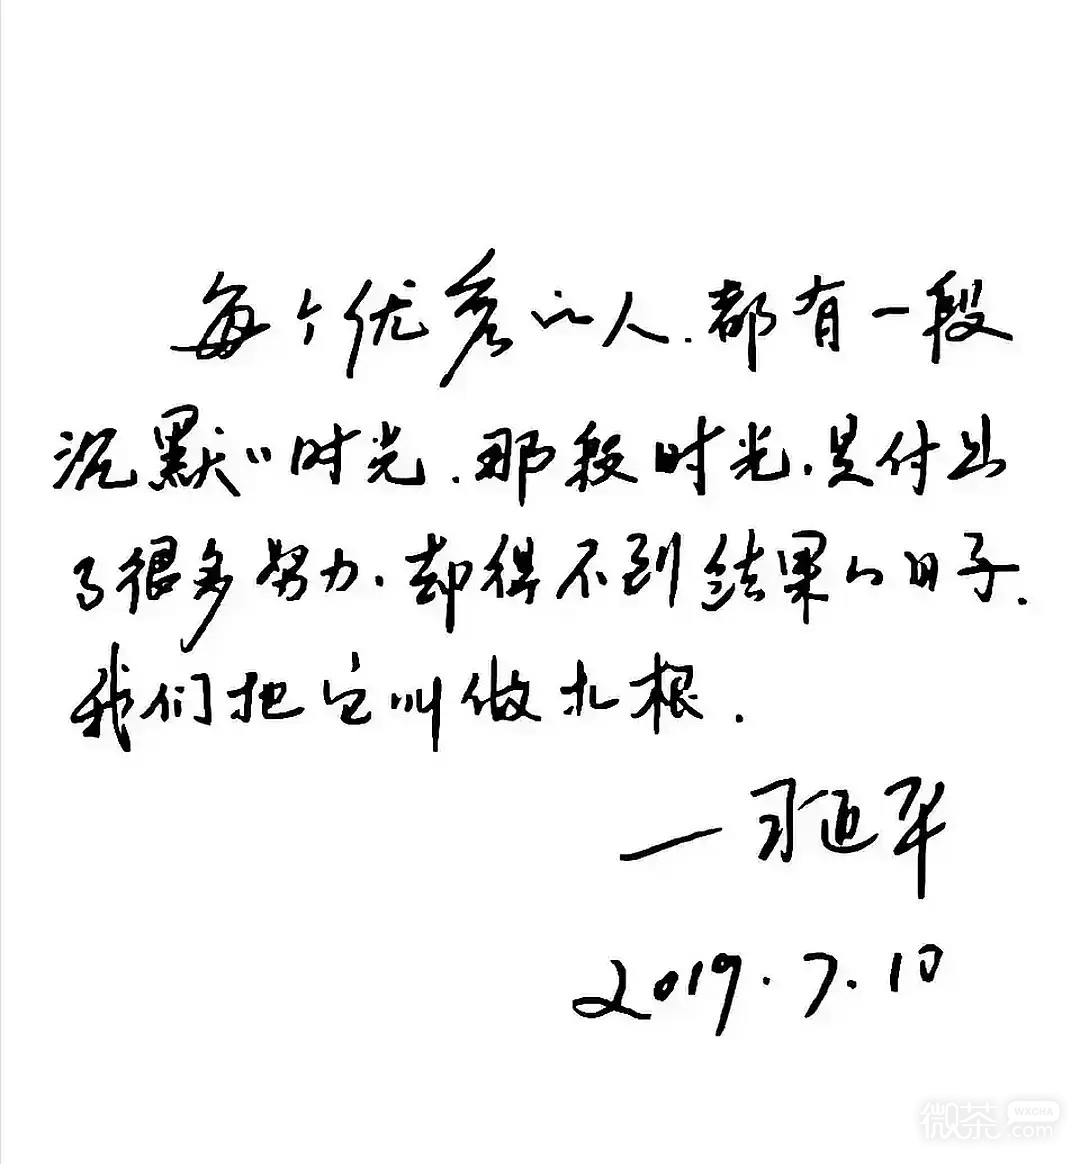 每个优秀的人.都有一段
沉默的时光.那段时光.是付出
了很多努力.却得不到结果的日子.
我们把它叫做扎根.
一习近平
2019.7.10
微茶 WXCHA .com